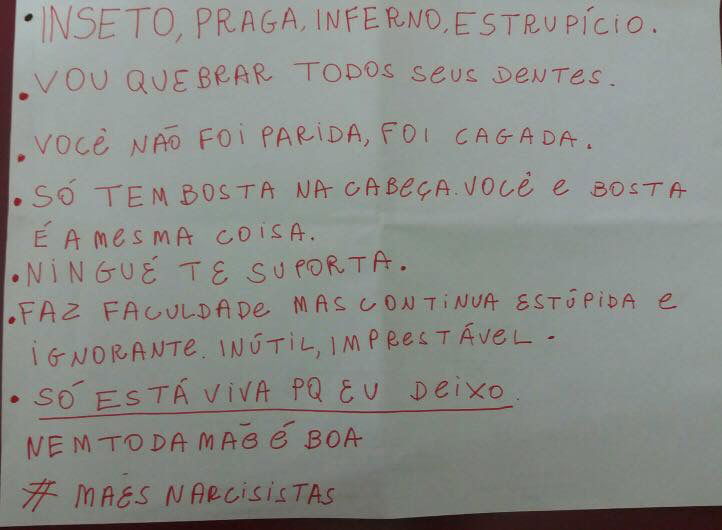 • INSETO, PRAGA, INFERNO, ESTRUPÍCIO.
• VOU QUEBRAR TODOS SEUS DENTES.
• VOCÊ NÃO FOI PARIDA, FOI CAGADA.
• SÓ TEM BOSTA NA CABEÇA. VOCÊ E BOSTA
É A MESMA COISA.
• NINGUÉ TE SUPORTA.
• FAZ FACULDADE MAS CONTINUA ESTÚPIDA E
IGNORANTE. INÚTIL, IMPRESTÁVEL.
• SÓ ESTÁ VIVA PQ EU DEIXO.
NEM TODA MÃE É BOA
# MÃES NARCISISTAS